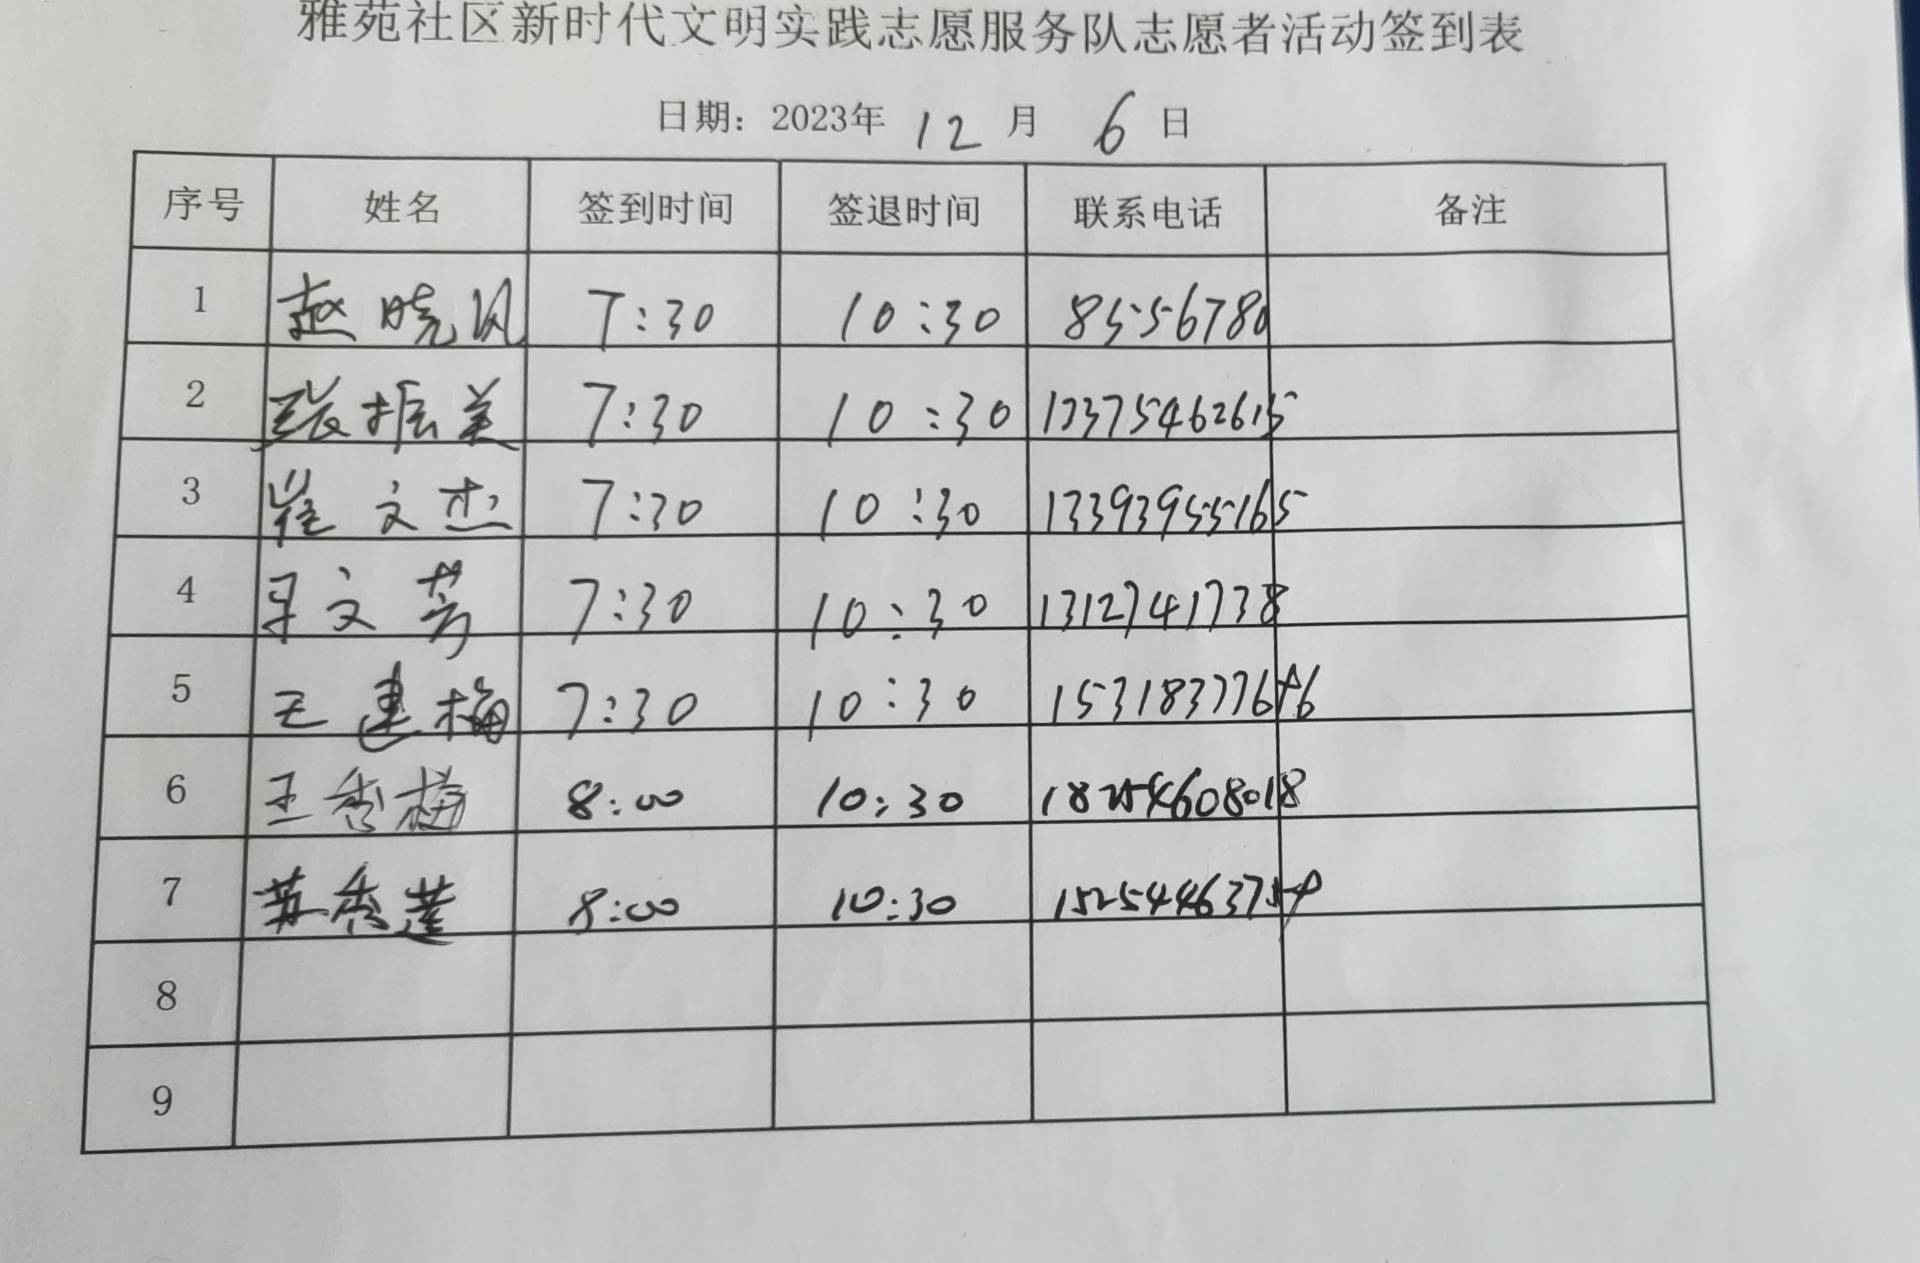 雅苑社区新时代文明实践志愿服务队志愿者活动签到表
日期：2023年 12 月 6 日
序号 姓名 签到时间 签退时间 联系电话 备注
1 赵晓风 7:30 10:30 8556780
2 张振美 7:30 10:30 13375462615
3 崔文杰 7:30 10:30 13393955165
4 文芳 7:30 10:30 1312741738
5 王建梅 7:30 10:30
6 王秀梅 8:00 10:30 18254608018
7 苏秀莲 8:00 10:30
8
9